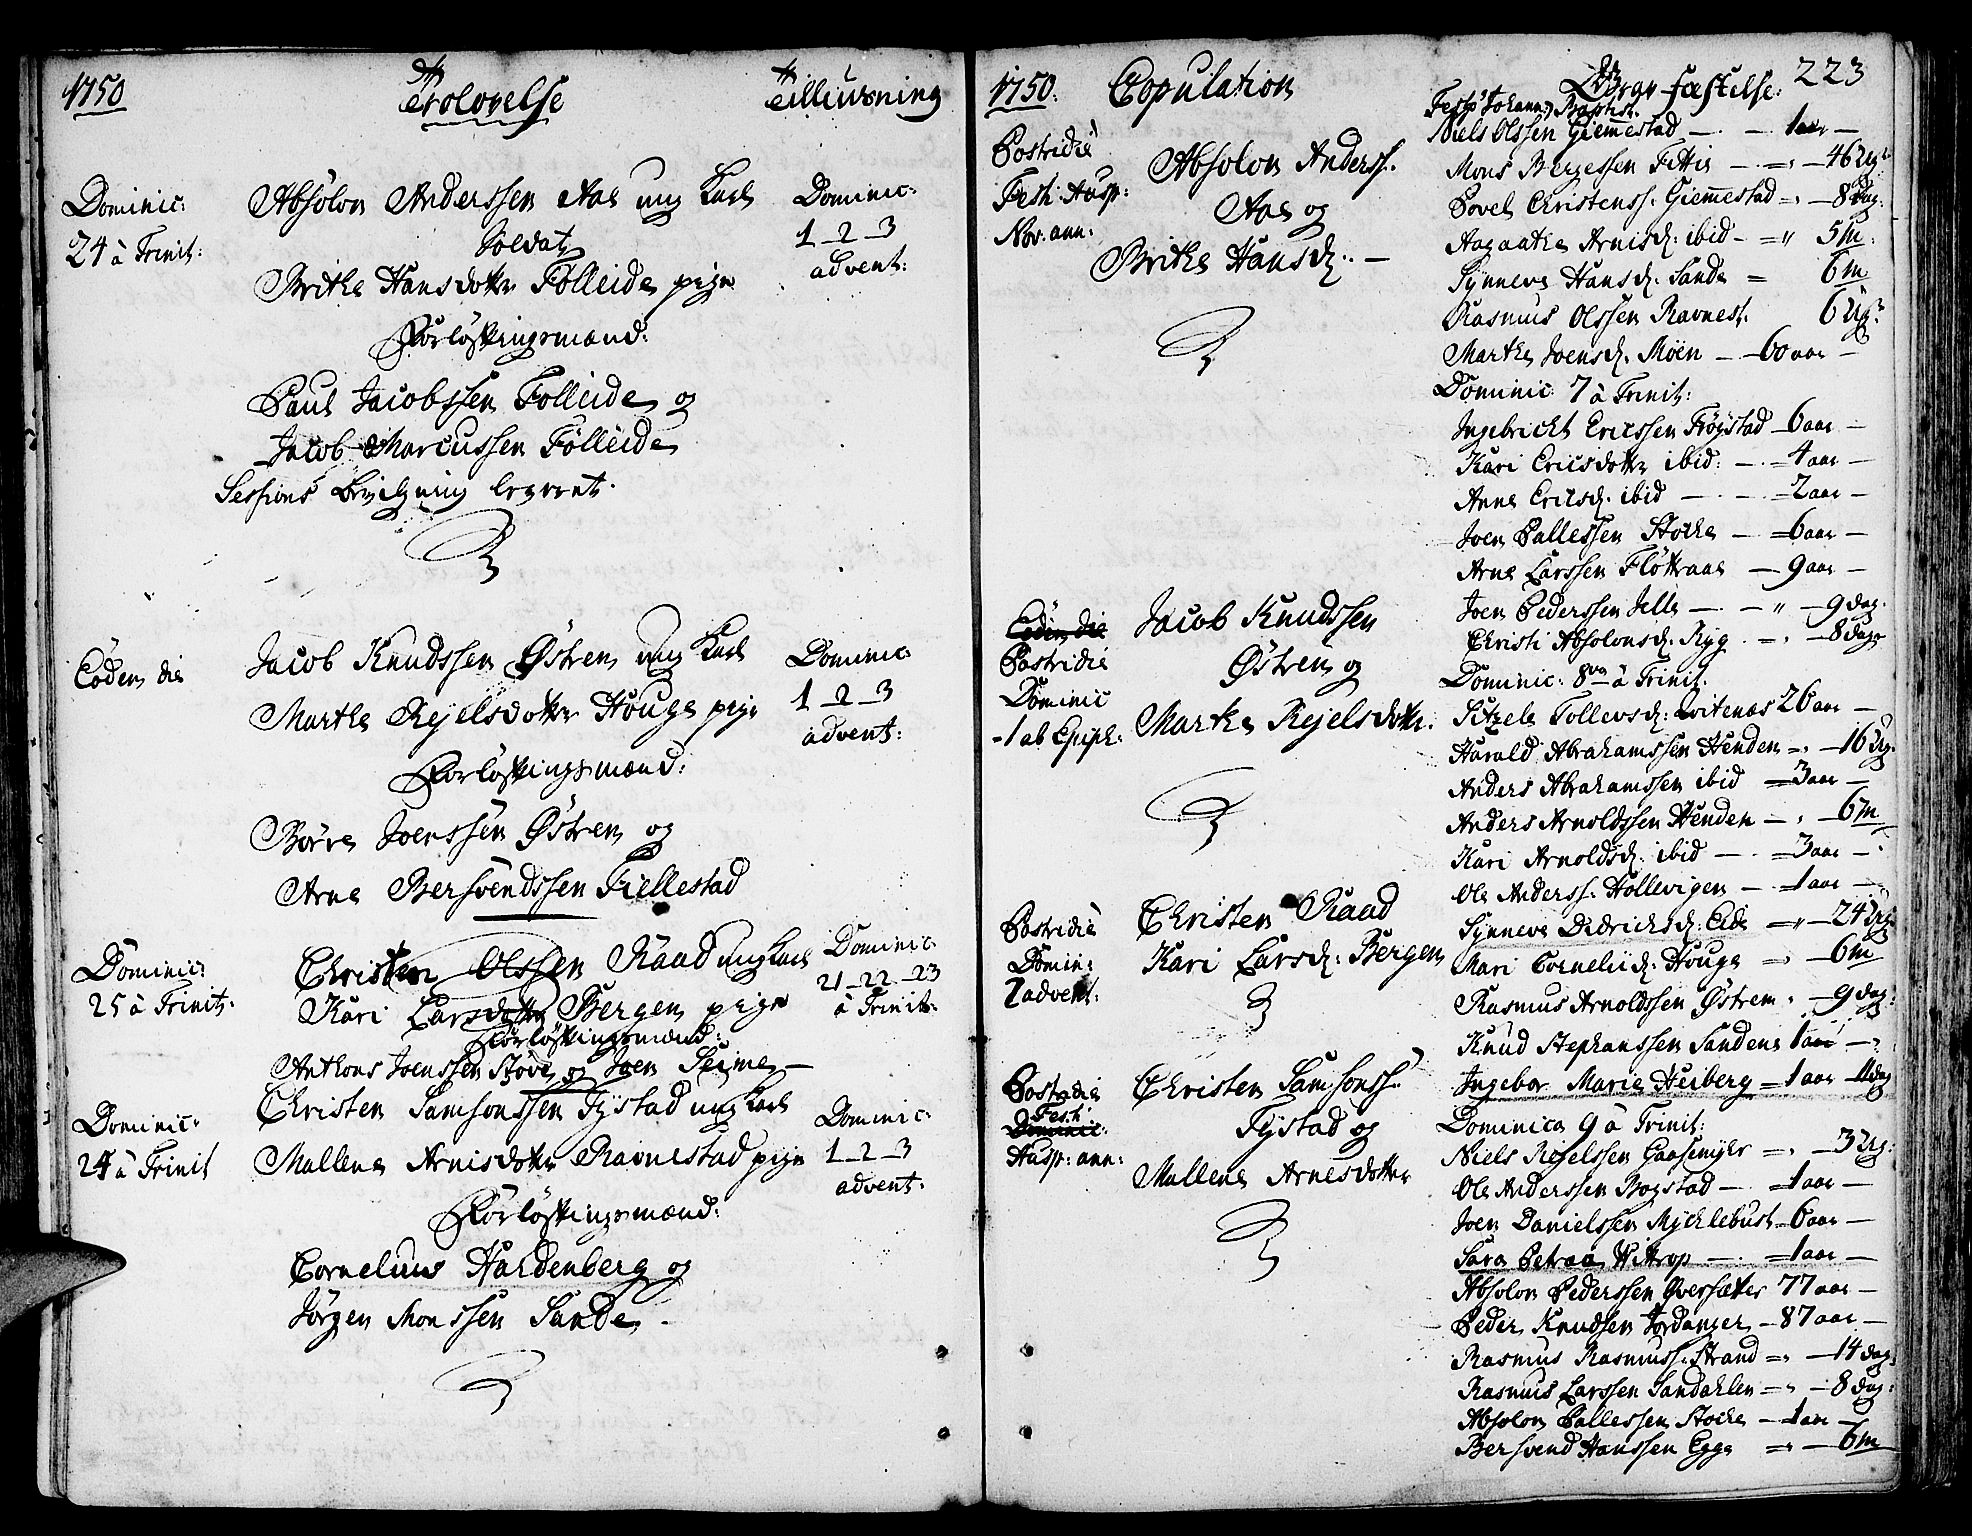 1750 Trolovelse Tillüusning
Dominic:
24 à Trinit:
Absolon Anderssen Aas ung Karl
Soldat
Brithe Hansdotter Folleide pige
Forløftningsmænd:
Paul Jacobssen Folleide og
Jacob Marcussen Folleide
Sessions leveret.
Dominic:
1_2_3
advent:
Eodem die
Jacob Knudssen Østrem ung Karl
Marthe Kejelsdotter Houge pige
Forløftningsmænd:
Børre Joenssen Østrem og
Arne Bersvendssen Fiellestad
Dominic:
1_2_3
advent:
Dominic:
25 à Trinit:
Christen Olssen Raad ung Karl
Kari Larsdotter Bergem pige
Forløftningsmænd:
Anthons Joenssen Støve og Joen Seime
Dominic:
21_22_23
à Trinit:
Dominic:
24 à Trinit
Christen Samsonssen Tystad ung Karl
Mallene Arnisdotter Ravnestad pige
Forløftningsmænd:
Cornelius Hardenberg og
Jørgen Monssen Sande
Dominic:
1_2_3
advent:
1750. Copulation
Postridie
Festi Husp:
Nov: ann:
Absolon Anderss:
Aas og
Brithe Hansd:
Eodem die
Postridie
Dominic
1 ab Epiph:
Jacob Knudssen
Østrem og
Marthe Kejelsdotter.
Postridie
Domin:
2 advent:
Christen Raad
Kari Larsd: Bergem
Postridie
Festi
Dominic:
Husp: ann:
Christen Samsonss:
Tystad og
Mallene Arnesdotter
Jordfæstelse: 223
Festo Johann: Baptist:
Niels Olssen Giemmestad — 1 aar —
Mons Bergessen Fettie — 46 Ug:
Povel Christenss: Giemmestad — 8 dag:
Aagaathe Arnisd: ibid — 5 M:
Synneve Hansd: Sande = 6 M
Rasmus Olssen Ravnest: 6 Ug:
Marthe Joensd: Moen — 60 aar —
Dominic: 7 à Trinit:
Ingebricht Ericssen Frøystad — 6 aar —
Kari Ericsdotter ibid: — 4 aar —
Anne Ericsd: ibid — 2 aar —
Joen Pallessen Stocke — 6 aar —
Arne Larssen Fløttraae — 9 aar —
Joen Pederssen Jelle — 9 dag:
Christi Absolonsd: Ryg — 8 dage
Dominic: 8va à Trinit:
Sitzele Tollevsd: Hvitenæs 26 aar —
Harald Abrahamssen Henden — 16 Ug:
Anders Abrahamssen ibid = 3 aar —
Anders Arnoldssen Henden — 6 M
Kari Arnoldsd: ibid — 3 aar —
Ole Anderss: Hollevigen — 1 aar —
Synneve Didrichsd: Eide — 24 Ug:
Mari Corneliid: Houge — 6 M
Rasmus Arnoldssen Østrem — 9 dag:
Knud Stephanssen Sandene 1 aar —
Ingebor Marie Heiberg = 1 aar 11 dag
Dominica 9 à Trinit:
Niels Rejelssen Gaasemyer — 3 Ug:
Ole Anderssen Bogstad — 1 aar —
Joen Danielssen Mycklebust 6 aar —
Sara Petraa Wittrop — 1 aar —
Absolon Pederssen Qversæter 77 aar —
Peder Knudsen Hordanger — 87 aar —
Rasmus Rasmuss: Strand — 14 dag:
Rasmus Larssen Sandahlen — 8 dag:
Absolon Pallessen Stocke — 1 aar —
Bersvend Hanssen Egge — 6 M